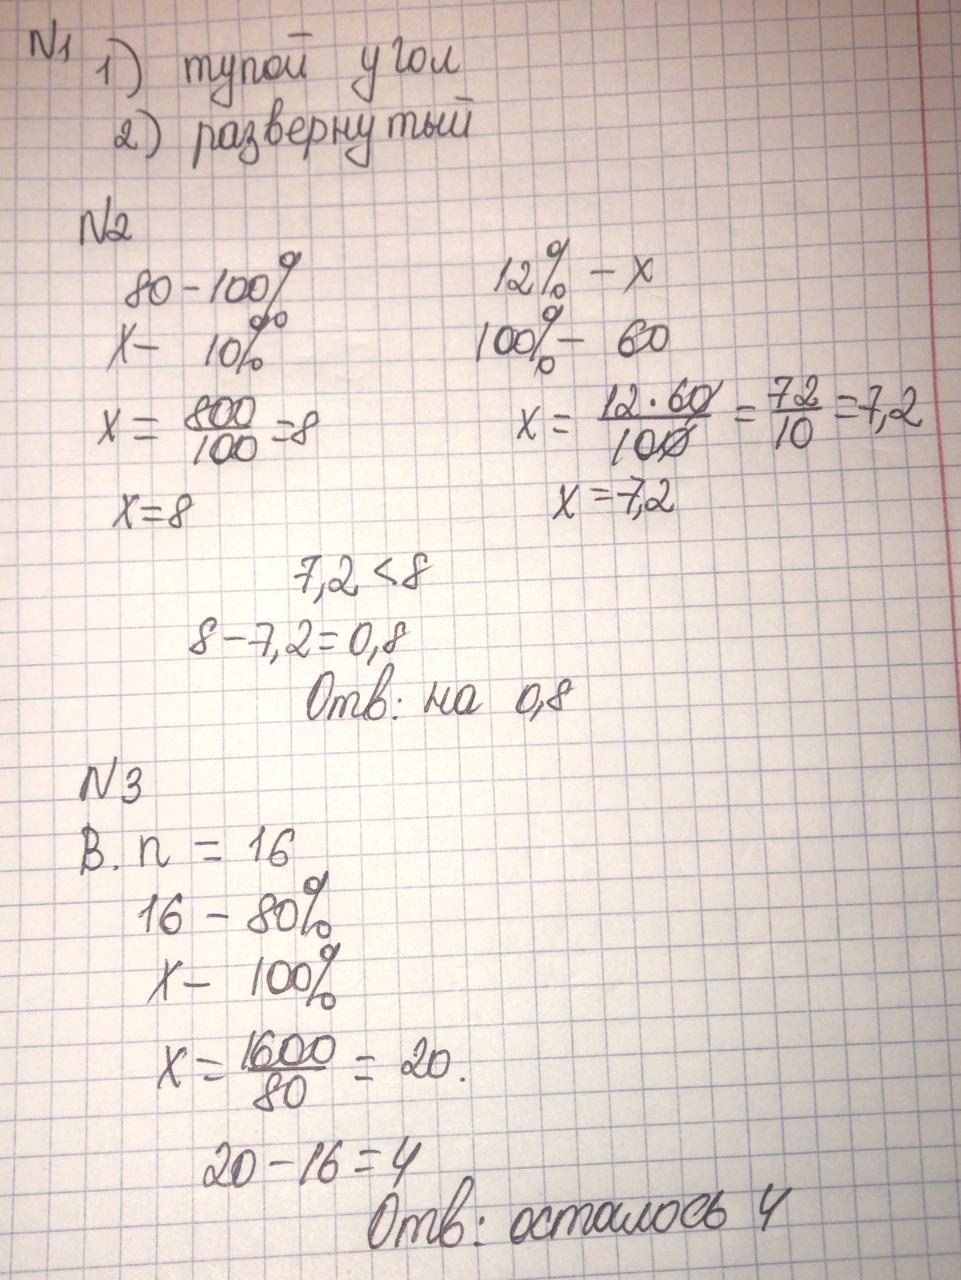 N1 1) тупой угол
2) развернутый
N2
80 - 100%
X - 10%
X = 800/100 = 8
X = 8
12% - X
100% - 60
X = 12·60/100 = 72/10 = 7,2
X = 7,2
7,2 < 8
8 - 7,2 = 0,8
Отв: на 0,8
N3
В. п = 16
16 - 80%
X - 100%
X = 1600/80 = 20.
20 - 16 = 4
Отв: осталось 4